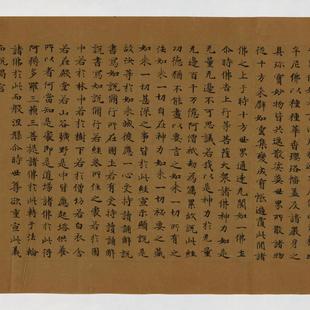 牟尼佛以種種華香瓔珞幡蓋及諸嚴身之
具珍寶妙物皆共遙散娑婆世界所散諸物
從十方來譬如雲集變成寶帳遍覆此間諸
佛之上于時十方世界通達无閡如一佛土
尒時佛告上行等菩薩大衆諸佛神力如是
无量无邊不可思議若我以是神力於无量
无邊百千万億阿僧祇劫為囑累故說此經
功德猶不能盡以要言之如來一切所有之
法如來一切自在神力如來一切祕要之藏
如來一切甚深之事皆於此經宣示顯說是
故汝等於如來滅後應一心受持讀誦解說
書寫如說脩行所在國土若有受持讀誦解
說書寫如說脩行若經卷所住之處若於園
中若於林中若於樹下若於僧坊若白衣舍
若在殿堂若山谷曠野是中皆應起塔供養
所以者何當知是處即是道場諸佛於此得
阿耨多羅三藐三菩提諸佛於此轉于法輪
諸佛於此而般涅槃尒時世尊欲重宣此義
而說偈言